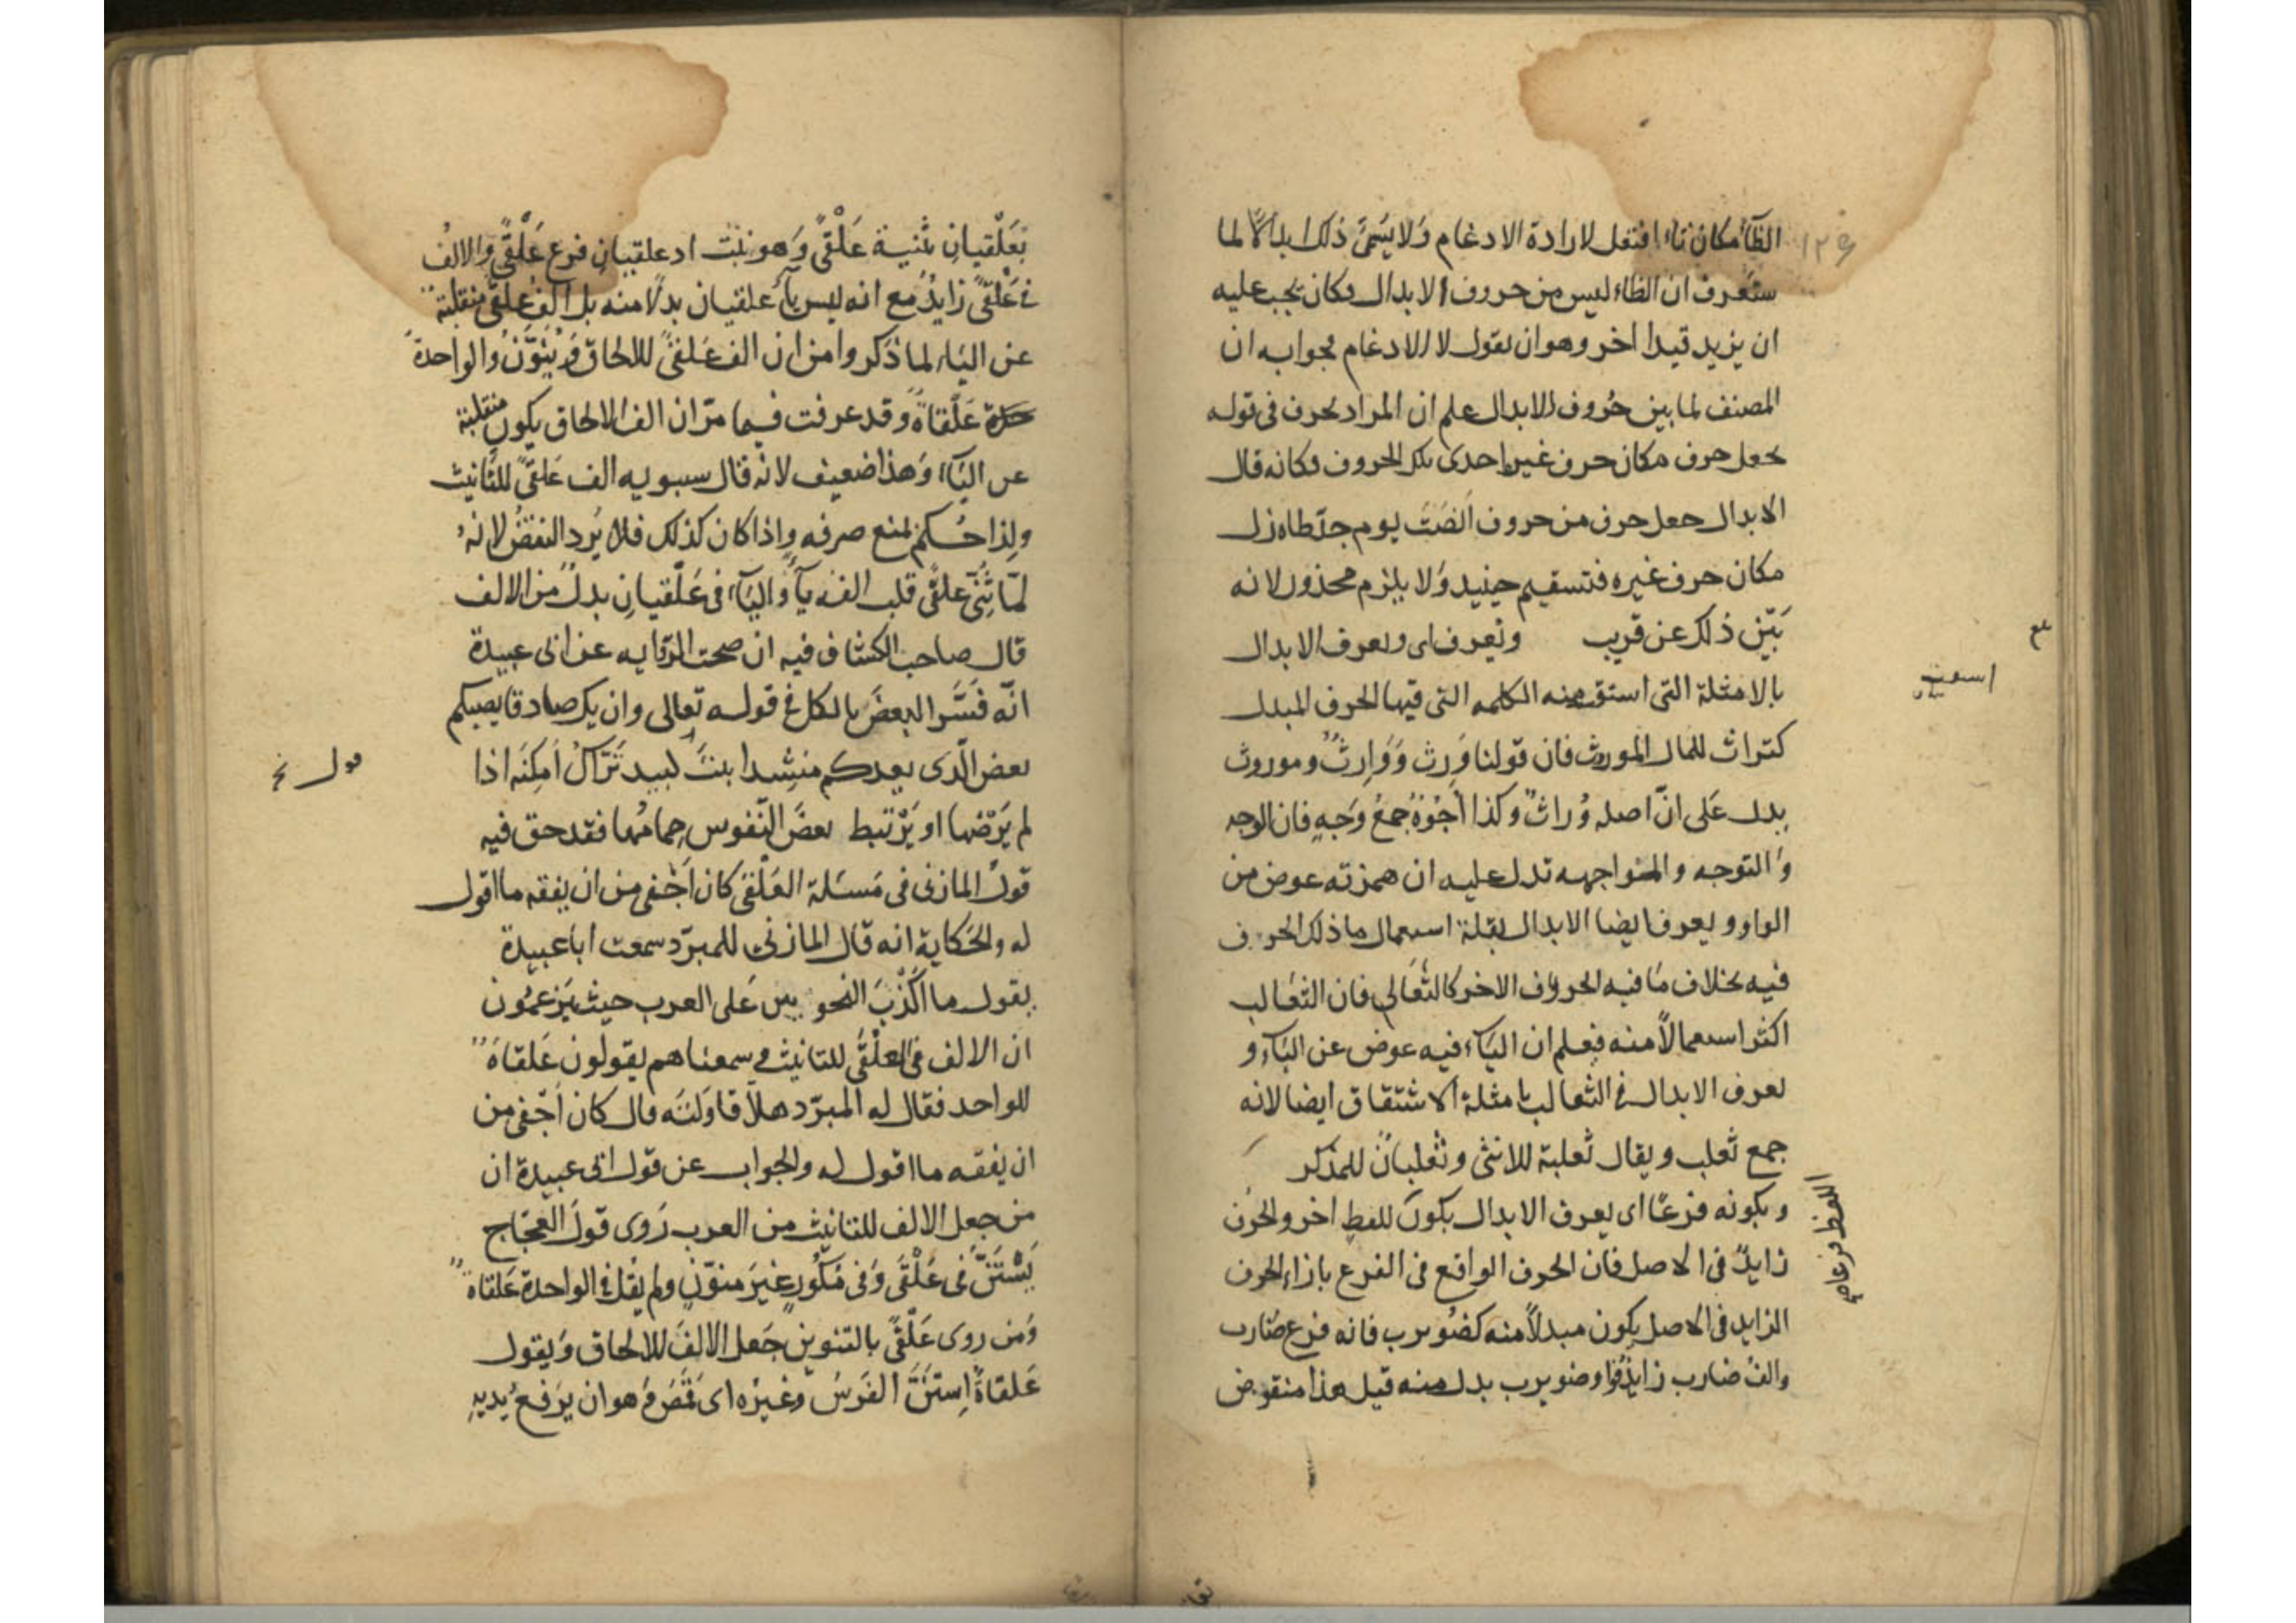 الظاء مكان تاء افتعل لارادة الادغام ولا يسمى ذلك ابدالا لما
ستعرف ان الظاء ليس من حروف الابدال فكان يجب عليه
ان يزيد قيدا اخر وهو ان يقول لا للادغام فجوابه ان
المصنف لما بين حروف الابدال علم ان المراد بحرف فى قوله
جعل حرف مكان حرف غيره احدى تلك الحروف فكانه قال
الابدال جعل حرف من حروف انصت يوم جد طاه زل
مكان حرف غيره فتستقيم حينيد ولا يلزم محذور لانه
بين ذلك عن قريب ويعرف اى ويعرف الابدال
بالامثلة التى اشتق منه الكلمه التى فيها الحرف المبدل
كتراث للمال الموروث فان قولنا وَرِث وَوَارِثٌ وموروث
يدل عَلى انّ اصله وُراثٌ وكذا اُجُوْهٌ جمعُ وَجْهٍ فان الوجه
والتوجه والمواجهه تدل عليه ان همزته عوض من
الواو ويعرف ايضا الابدال بقلة استعمال ما ذلك الحرف
فيه بخلاف مَا فيه الحروف الاخر كالثَّعَالى فان الثعَالب
اكثر استعمالاً منه فيعلم ان اليَآء فيه عوض عن البَآء و
يعرف الابدال فى الثعالب بامثلة الاشتقاق ايضا لانه
جمع ثعلب ويقال ثعلبة للانثى وثعلبان للمذكر
وبكونه فرعًا اى يعرف الابدال بكون للفظ اخر والحرف
زايدٌ فى الاصل فان الحرف الواقع فى الفرع بازاء الحرف
الزايد فى الاصل يكون مبدلاً منه كضُويرب فانه فرع ضارب
والف ضارب زايدٌ فواو ضويرب بدل منه قيل هذا منقوض
اللفظ فرعا
بعَلْقيانِ تثنية عَلْقىً وَهو نبت اذ علقيان فرع عَلْقىً والالفُ
فى عَلْقىً زايدٌ مع انه ليس يآءُ علقيان بدلًا منه بل الف علقىً منقلبة
عن اليَاء لما ذكروا من ان الف عَلقىً للالحاق وَيُنَوَّنُ والواحدة
عَلْقاةً وقد عرفت فيما مرّ ان الف الالحاق يكون منقلبة
عن اليَآء وَهذا ضعيف لانه قال سيبويه الف عَلقىً للتانيث
ولِذا حُكم لمنع صرفه وإذا كان كذلك فلا يَرد النقضُ لانهُ
لمّا ثُنِّىَ علقىً قلب الفه يآءً واليَآء فى عَلْقيانِ بدلٌ من الالف
قال صاحب الكشاف فيه ان صحت الرّوايه عن ابى عبيدة
انّه فَسَّر البعضَ بالكل فى قوله تعالى وان يك صادقا يصبكم
بعض الّذى يعدكم منشِدا بيت لبيد تَرّاكُ اَمكِنَه اذا
لم يَرْضها او يَرْتبط بعضَ النّفوس حِمامُها فقد حق فيه
قولُ المازنى فى مَسئلة العَلْقىَ كان اَجْفى من ان يفقه ما اقول
له والحكاية انه قال المازنى للمبرّد سمعت ابا عبيدة
يقول ما اَكْذَبَ النحويين عَلى العرب حيث يَزعمُون
ان الالف فى العَلْقَى للتانيث وسمعناهم يقولون عَلقاةٌ
للواحد فقال له المبرّد هلاّ قاوَلتَه قال كان اَجْفى من
ان يفقه ما اقول له والجواب عن قول ابى عبيدة ان
من جعل الالف للتانيث من العرب رَوى قولَ العجّاج
يَسْتَنُّ فى عَلْقَى وَفى مَكُورِ غيرَ منوّنٍ ولم يقُل فى الواحدة عَلقاةٌ
وَمن روى عَلْقًى بالتنوين جَعل الالفَ للالحاق وَيقول
عَلقاةٌ اِستَنَّ الفَرسُ وغيرُه اى قَمَصَ وَهو ان يَرفعُ يديهِ